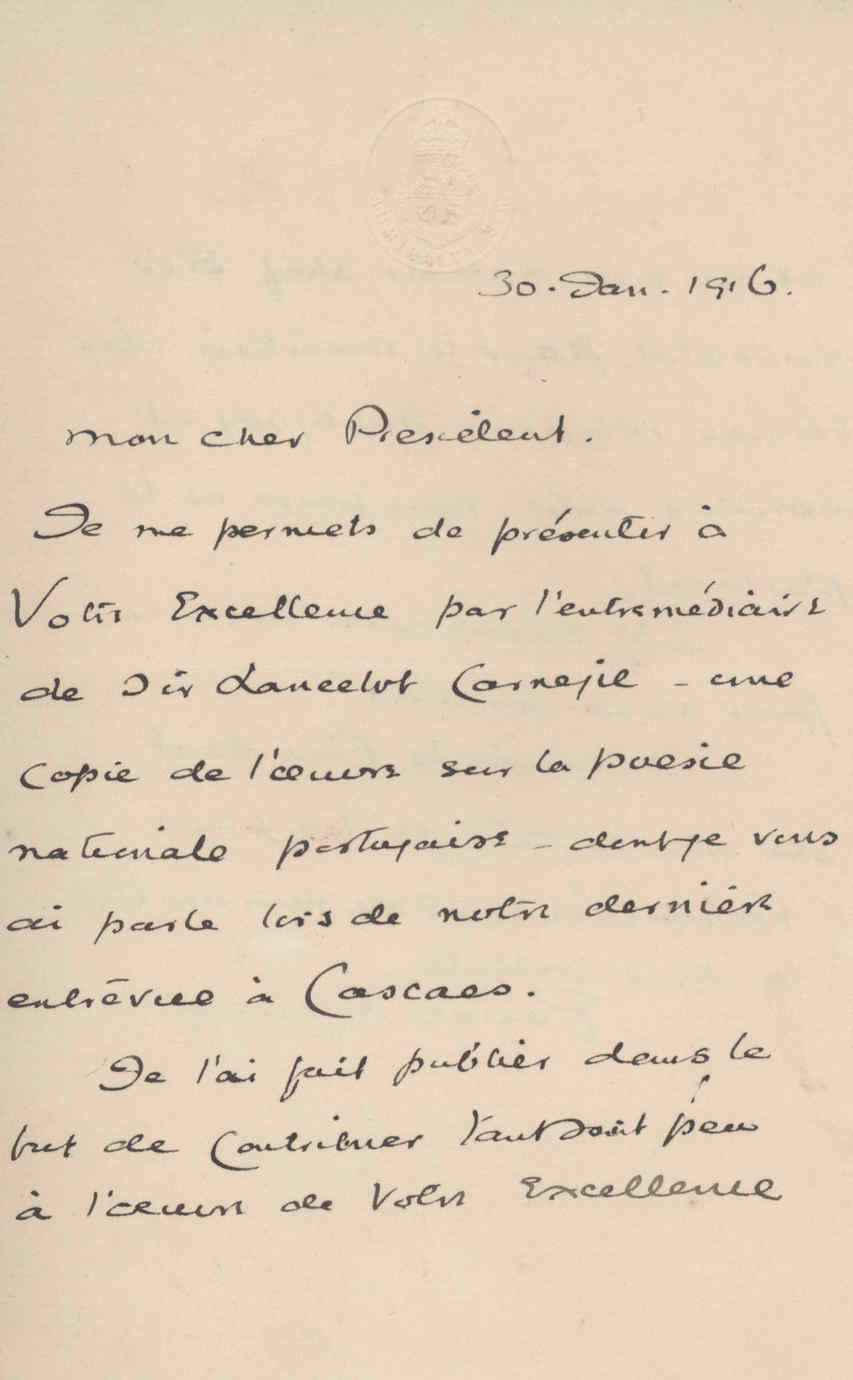 30. Jan. 1916.
Mon cher President.
Je me permets de présenter à
Votre Excellence par l'entremédiaire
de Sir Lancelot Carnegie - une
Copie de l'œuvre sur la poesie
nationale portugaise - dont je vous
ai parle lors de notre dernière
entrêvue à Cascaes.
Je l'ai fait publier dans le
but de contribuer tant soit peu
à l'œuvre de Votre Excellence